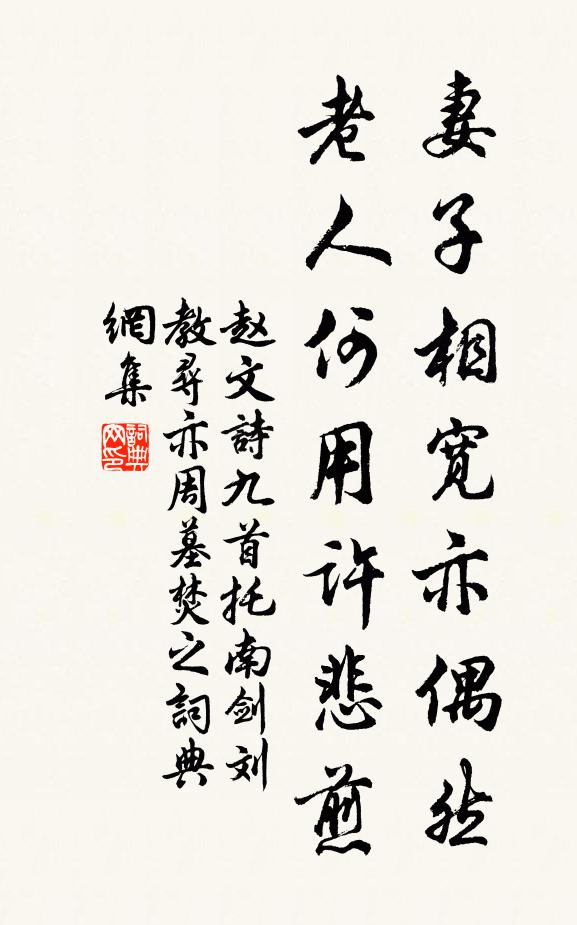 妻子相寬亦偶然
老人何用許悲煎
赵文詩九首托南剑刘
教尋亦周墓焚之詞典
網集
詞典
网印